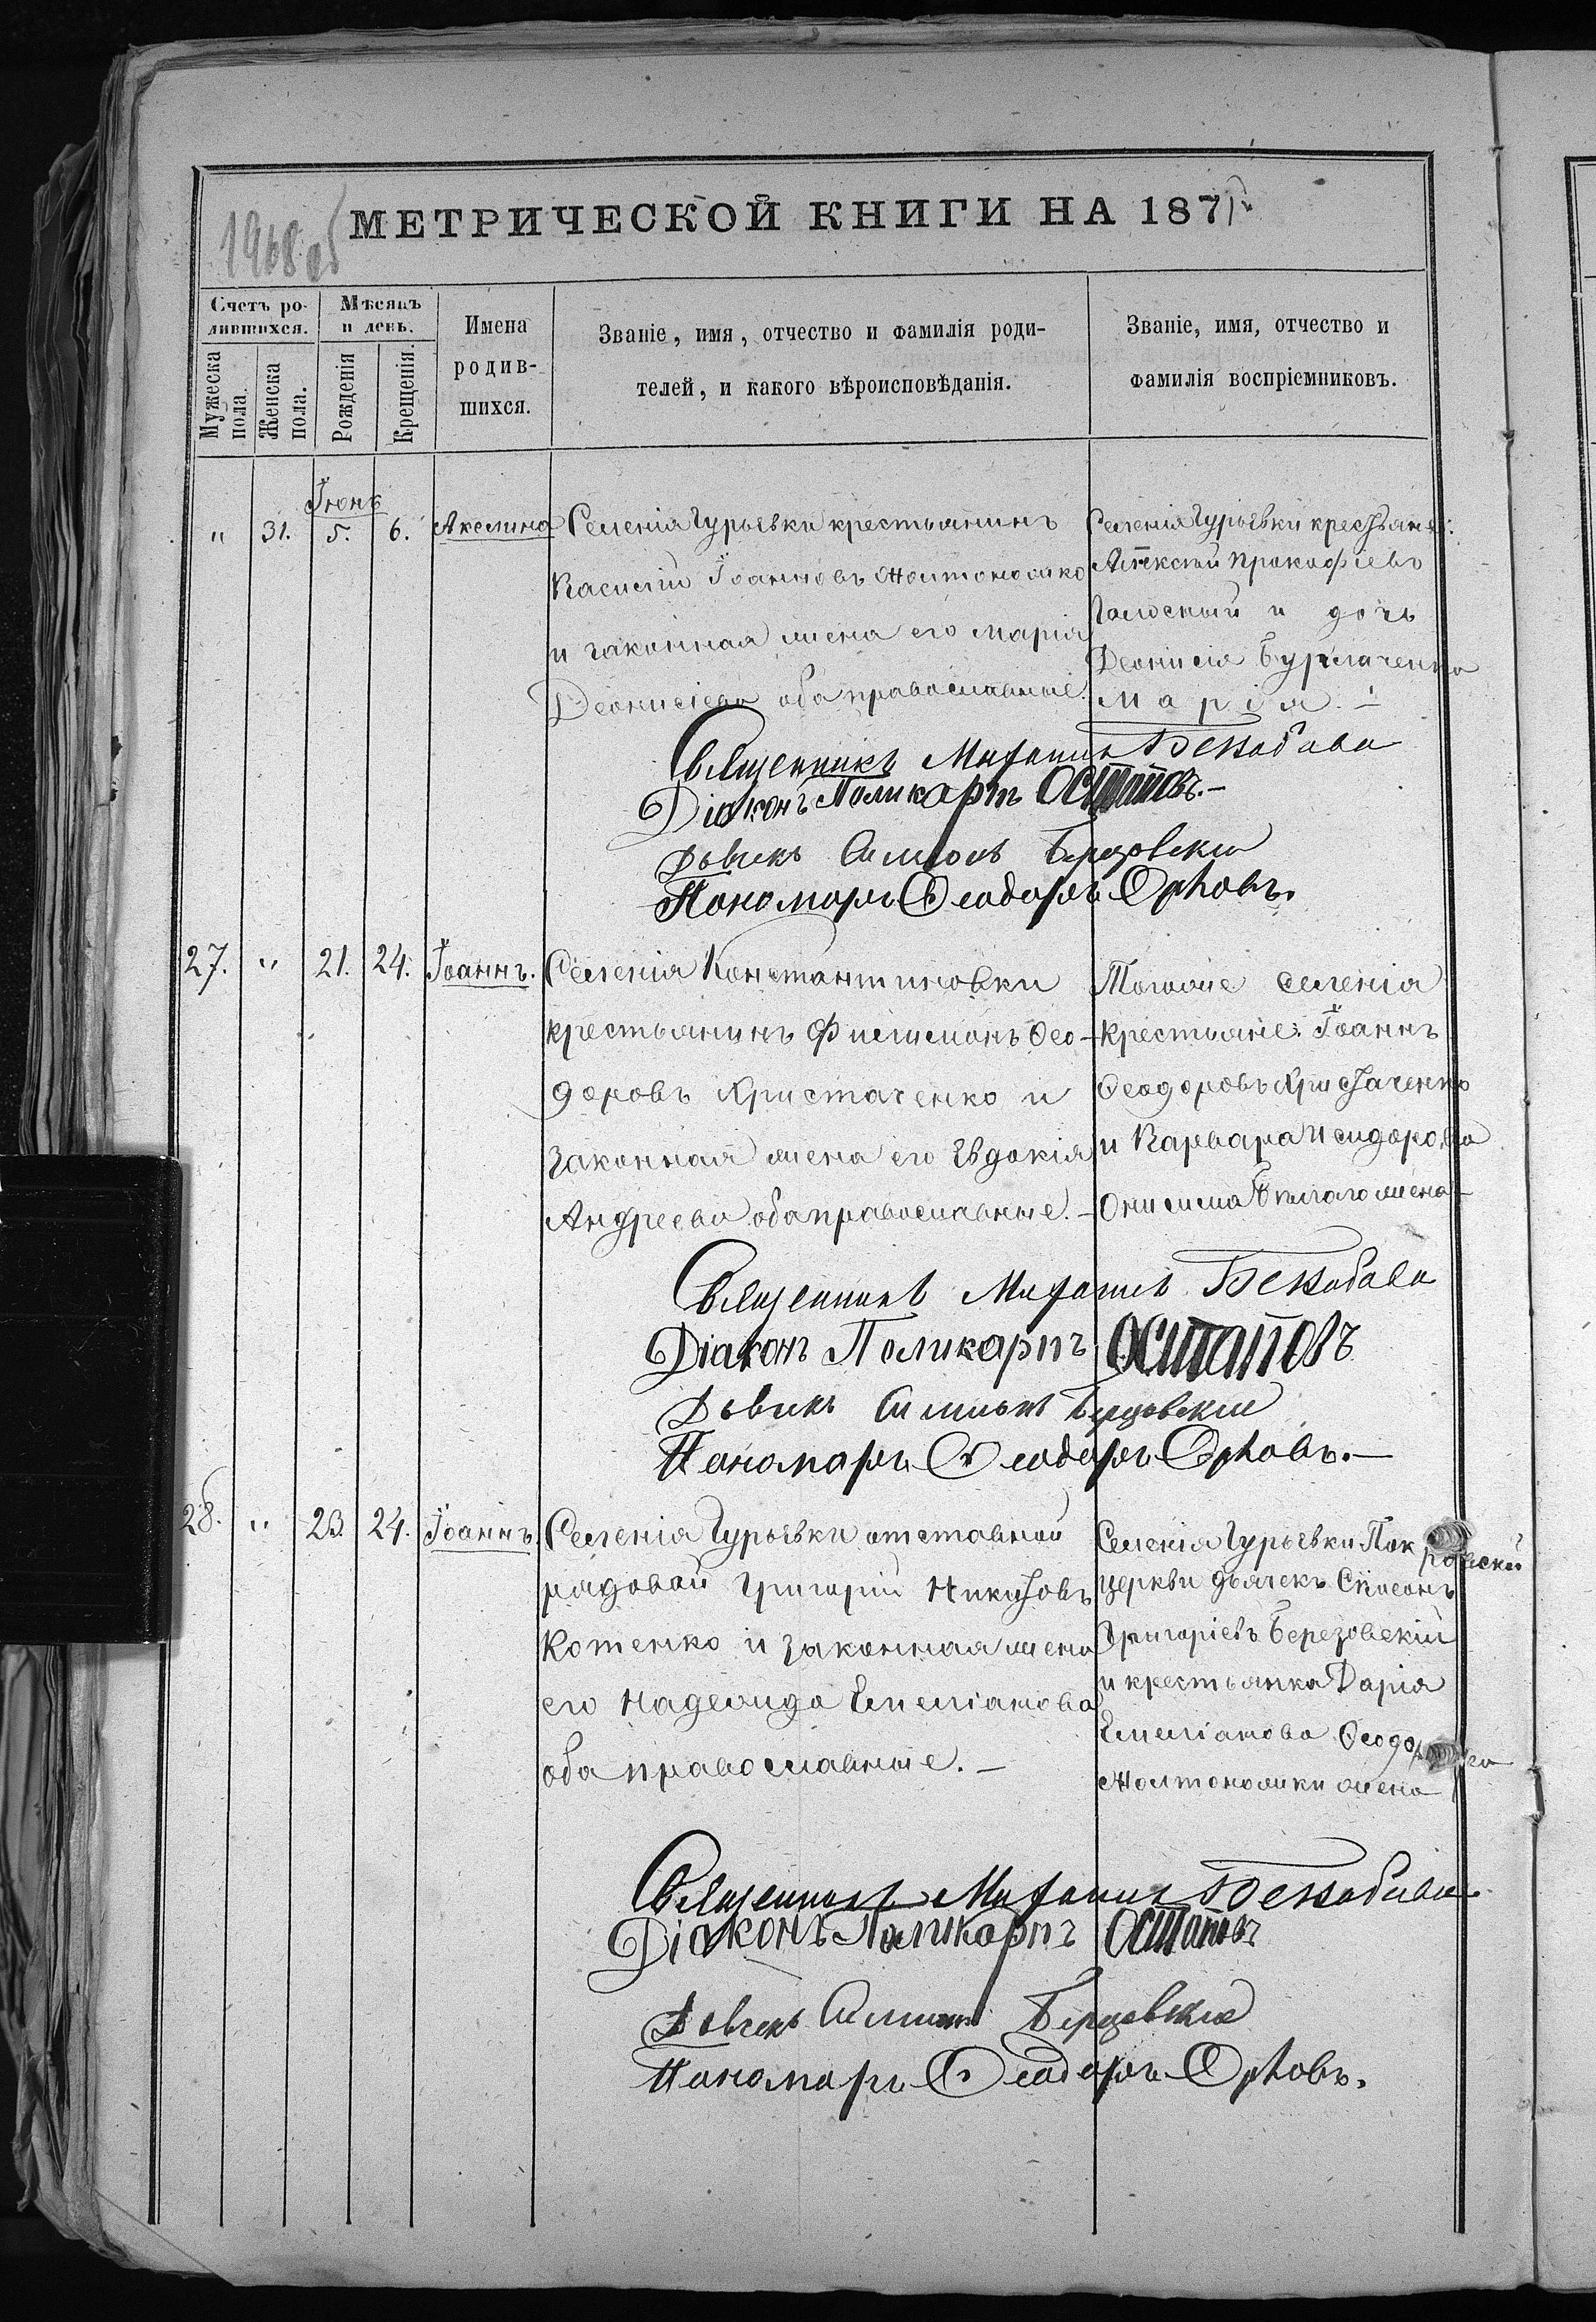 1968 об
МЕТРИЧЕСКОЙ КНИГИ НА 187
Счетъ ро-
дившихся.
Мѣсяцъ
и день.
Мужеска
пола.
Женска
пола.
Рожденія
Крещенія.
Имена
родив-
шихся.
Званіе, имя, отчество и фамилія роди-
телей, и какого вѣроисповѣданія.
Званіе, имя, отчество и
фамилія воспріемниковъ.
Іюнь
" 31. 5. 6. Акелина
Селенія Гурьевки крестьянинъ
Василій Іоанновъ Жолтоножко
и законная жена его Марія
Деонисіева оба православные.
Селенія Гурьевки крестьяне:
Алексѣй Прокофіевъ
и дочь
Деонисія Бурлаченка
Марія. -
Священникъ
Діаконъ Поликарпъ Остаповъ.-
Дьячекъ Симеонъ Березовскій
Пономарь Ѳеодоръ Орловъ.
27. " 21. 24. Іоаннъ.
Селенія Константиновки
крестьянинъ Филимонъ Ѳео-
доровъ Христаченко и
законная жена его Евдокія
Андреева оба православные. -
Тогоже селенія
крестьяне: Іоаннъ
Ѳеодоровъ Христаченко
и Варвара Исидорова
Онисима Бѣлаго жена -
Священникъ
Діаконъ Поликарпъ Остаповъ
Дьячекъ Симеонъ Березовскій
Пономарь Ѳеодоръ Орловъ. -
28. " 23. 24. Іоаннъ.
Селенія Гурьевки отставной
рядовой Григорій Никитовъ
Котенко и законная жена
его Надежда Емеліанова
оба православные. -
Селенія Гурьевки Покровской
церкви дьячекъ Симеонъ
Григоріевъ Березовскій
и крестьянка Дарія
Емеліанова
Жолтоножки жена
Священникъ
Діаконъ Поликарпъ Остаповъ
Дьячекъ Симеонъ Березовскій
Пономарь Ѳеодоръ Орловъ.